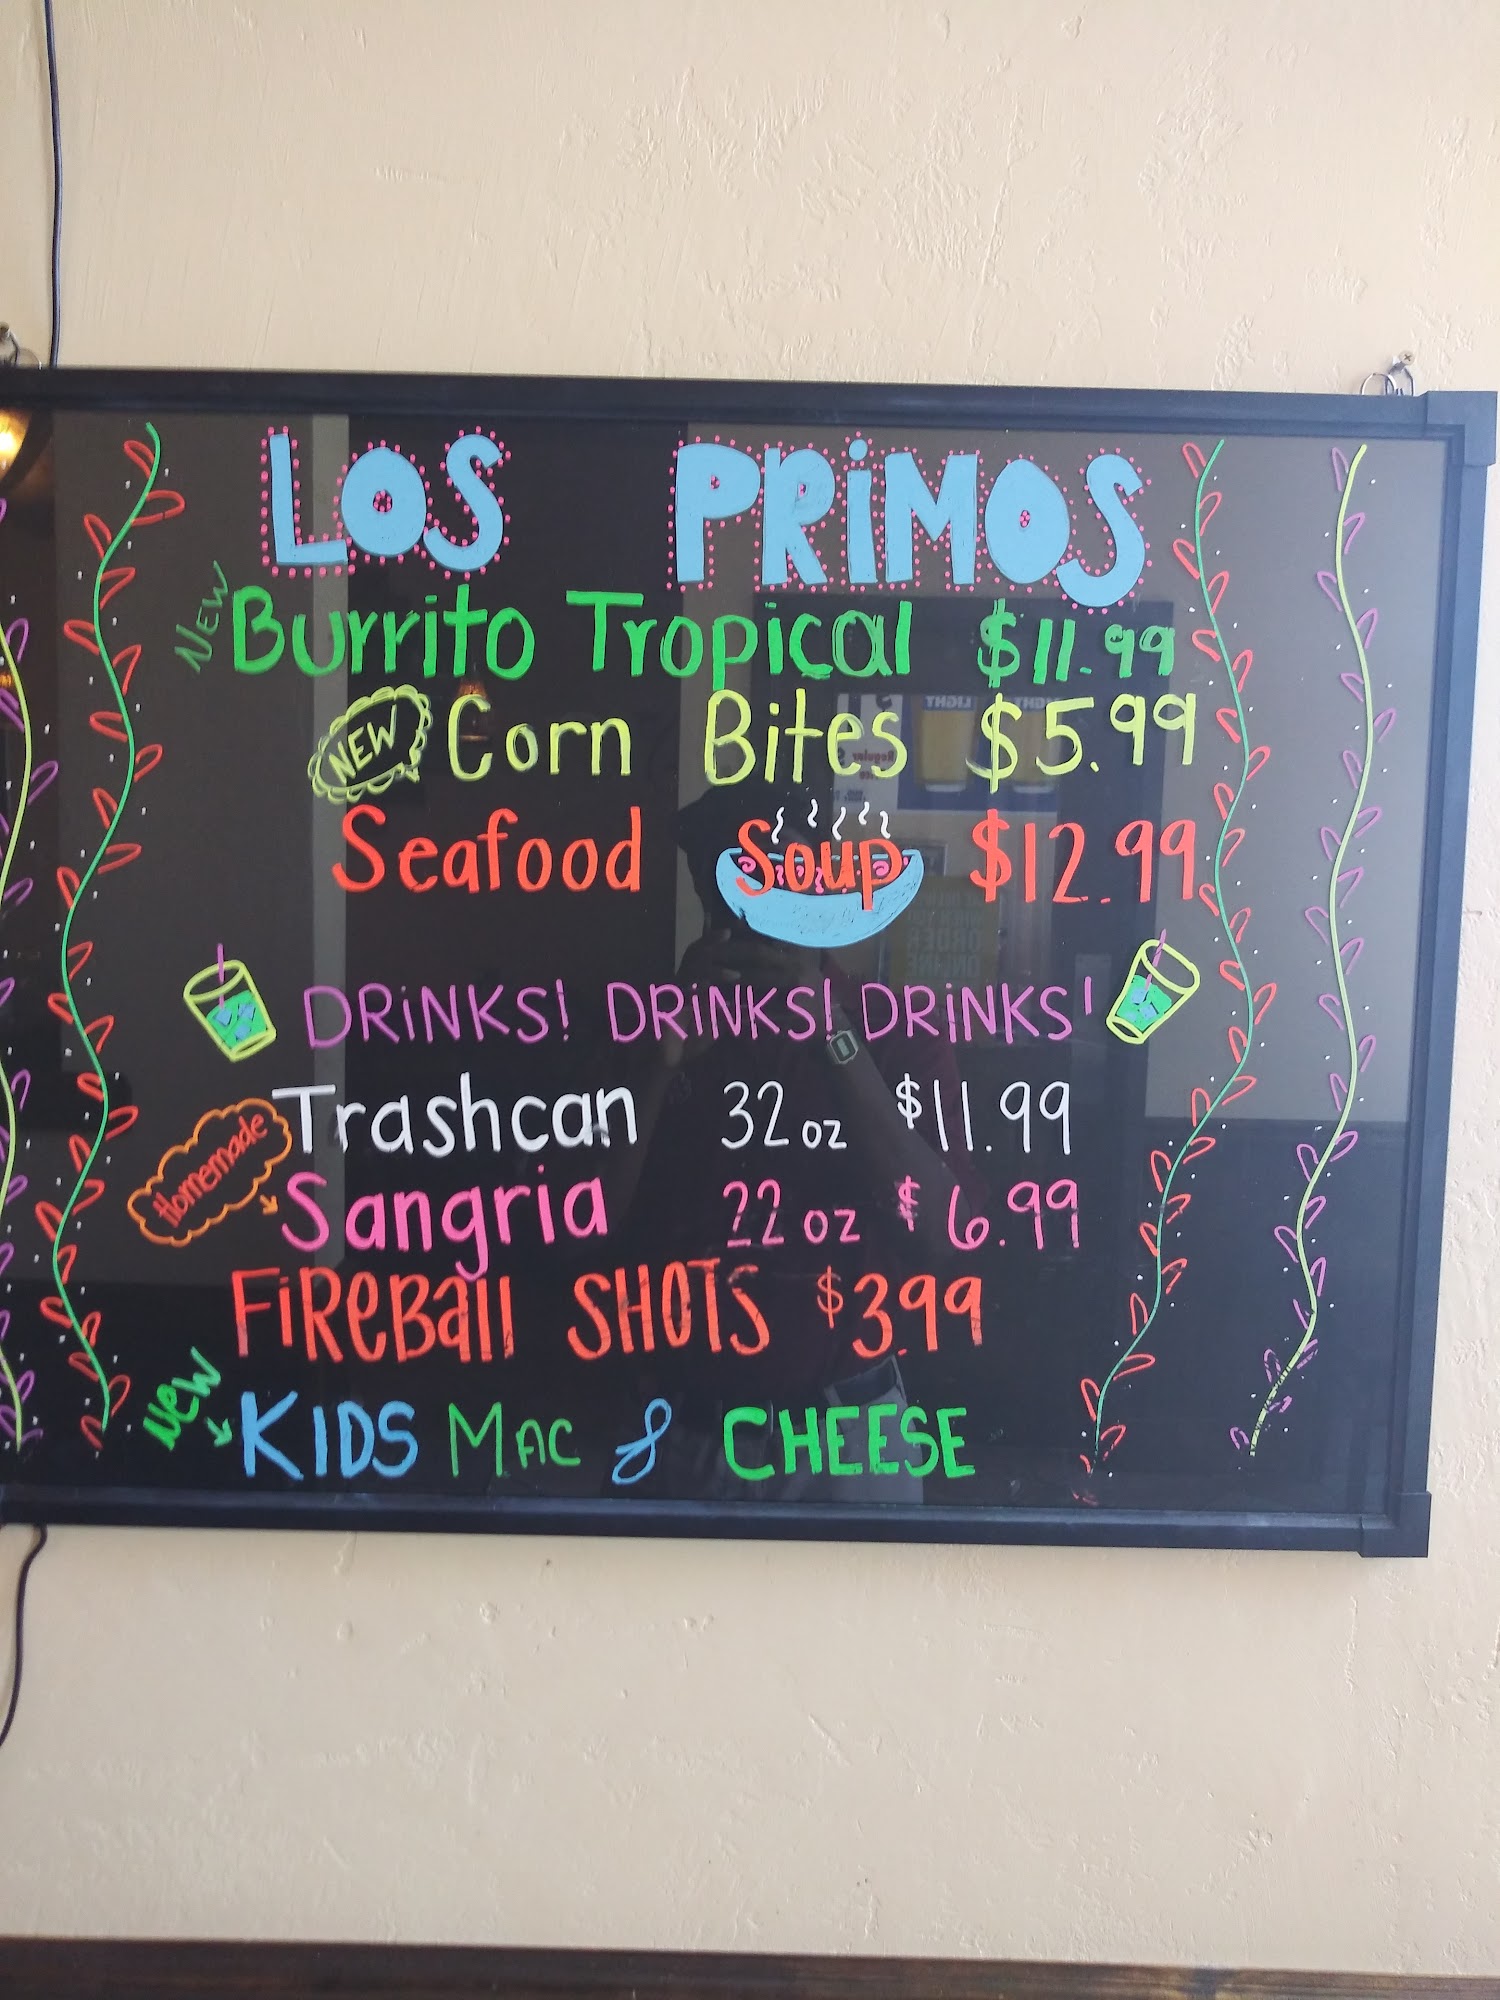 LOS PRiMOS
NEW Burrito Tropical $11.99
NEW Corn Bites $5.99
Seafood Soup $12.99
DRiNKS! DRiNKS! DRiNKS!
Trashcan 32oz $11.99
Homemade Sangria 22oz $6.99
FiREBall SHOTS $3.99
NEW KIDS MAC & CHEESE